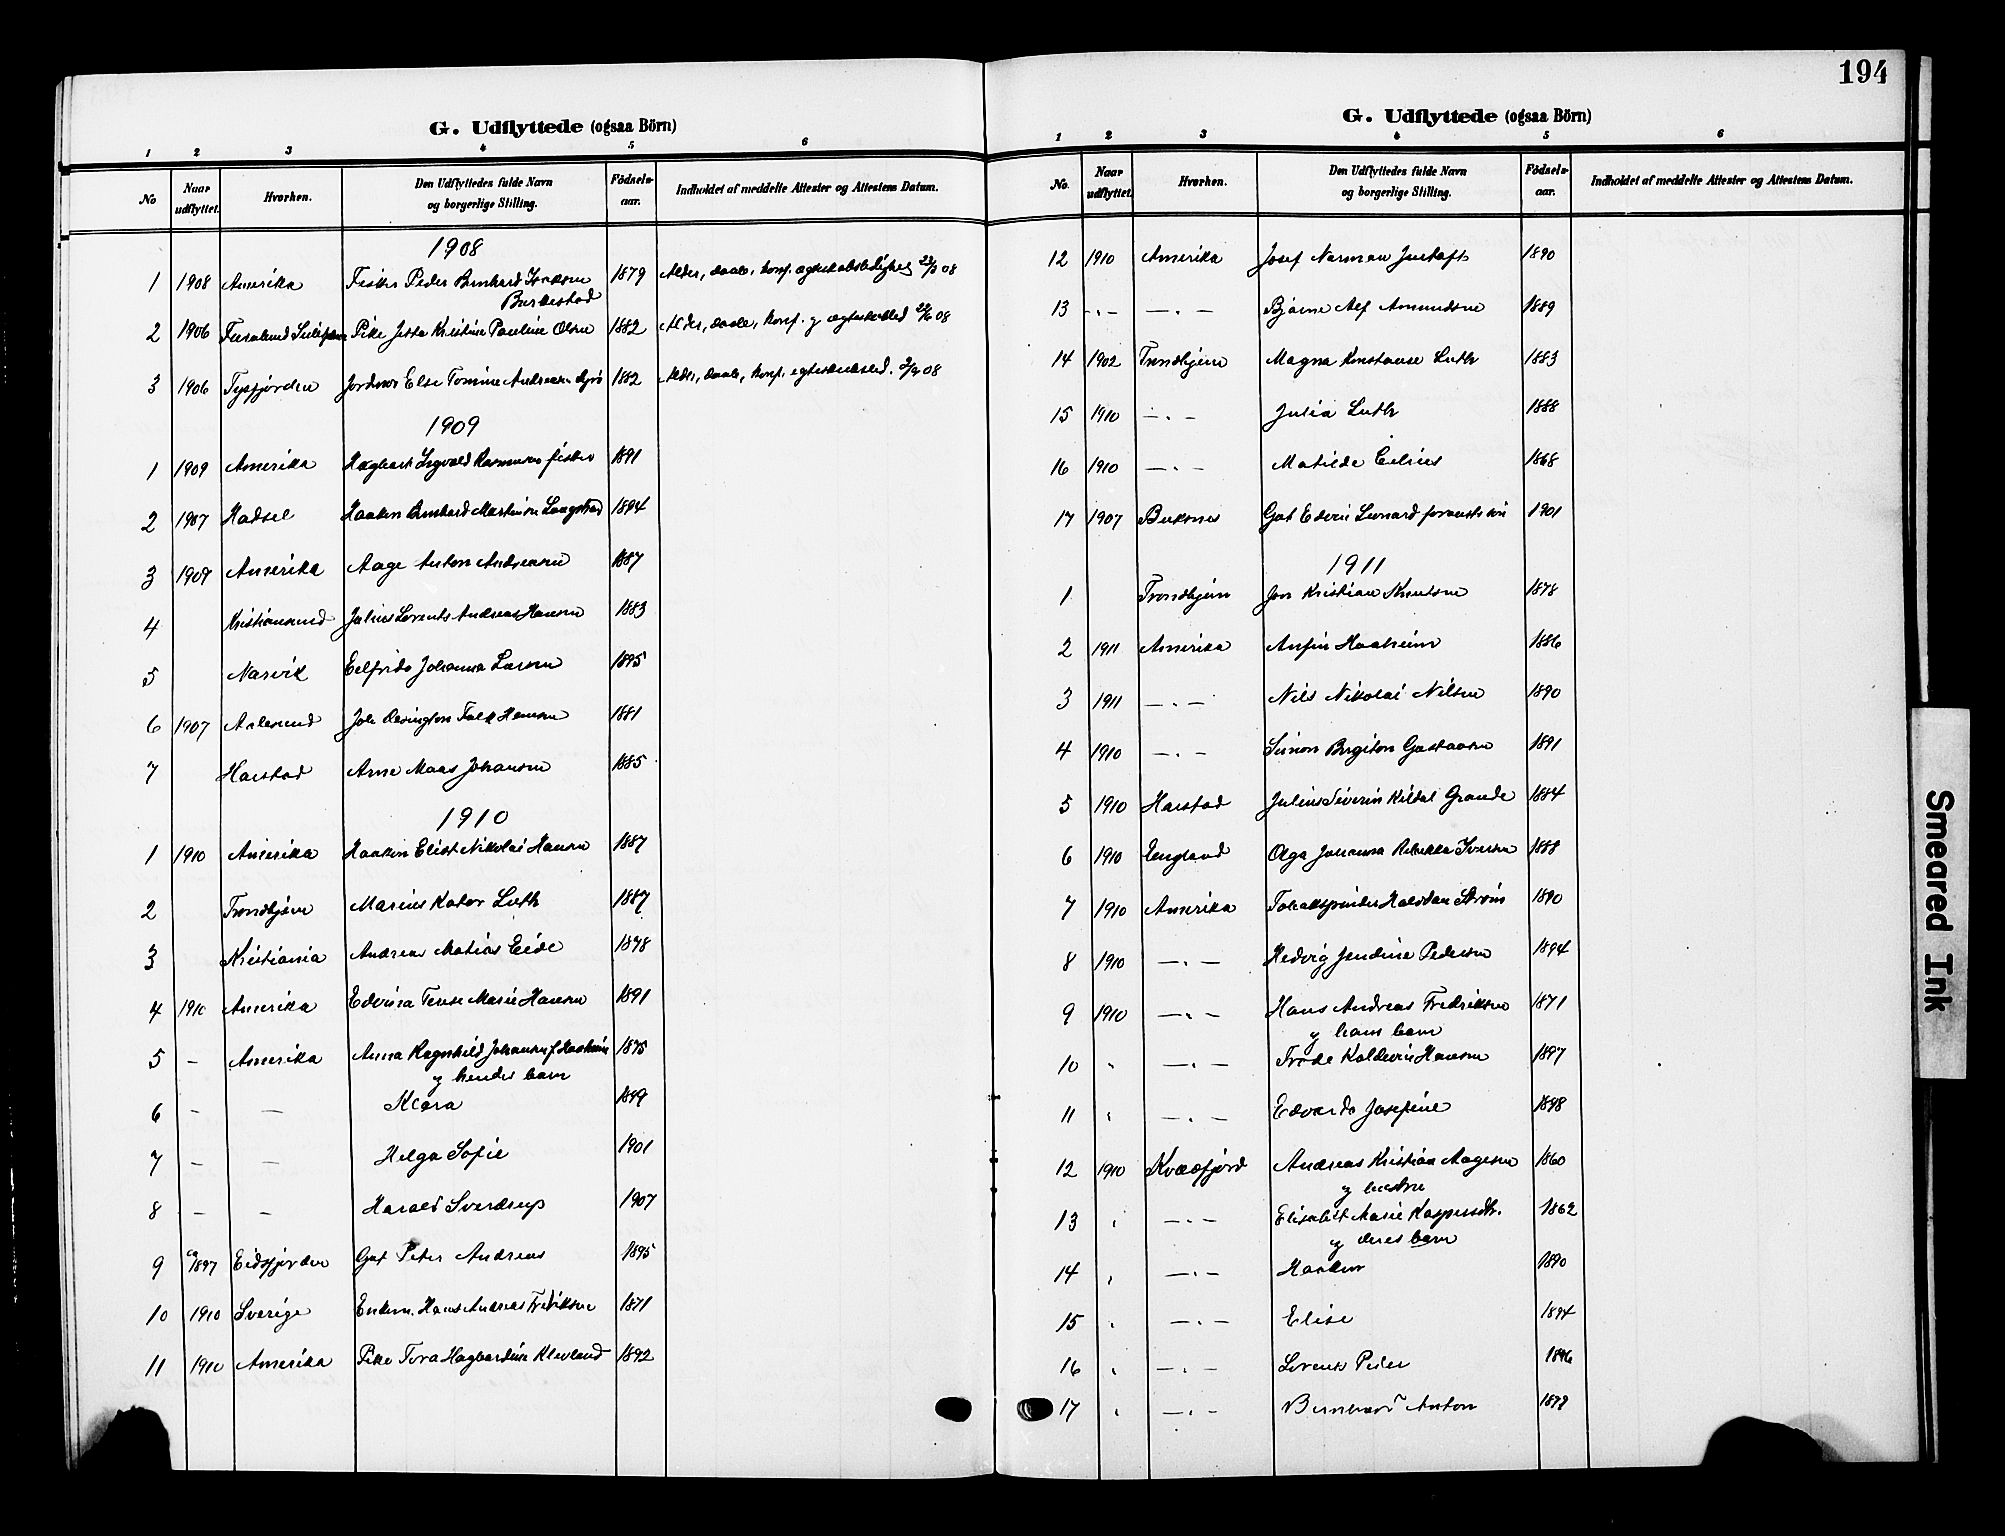 194
G. Udflyttede (ogsaa Börn)
1 2 3 4 5 6
No Naar udflyttet. Hvorhen. Den Udflyttedes fulde Navn og borgerlige Stilling. Födsels-aar. Indholdet af meddelte Attester og Attestens Datum.
1908
1 1908 Amerika Fisker Peder Bernhard Isaksen 1879 Alder, daab, konf. ægteskabsledighed 08
Burkestad
2 1906 Pike Kristine Pauline Olsen 1882 Alder, daab, konf. og 08
3 1906 Tysfjorden Jordmor Else Tomine Andreasen 1882 Alder, daab, konf. 08
1909
1 1909 Amerika Hagbart Ingvald Rasmussen fisker 1891
2 1907 Hadsel Haakon Bernhard 1894
3 1909 Amerika Aage Anton Andreasen 1887
4 Kristiansund Julius Lorents Andreas Hansen 1883
5 Narvik Johanna Larsen 1895
6 1907 Aalesund Falk Hansen 1881
7 Harstad Arne Maas Johansen 1885
1910
1 1910 Amerika Haakon Nikolai Hansen 1887
2 Trondhjem Marius Luth 1887
3 Kristiania Andreas Matias Eide 1878
4 1910 Amerika Edvina Marie Hansen 1891
5 - Amerika Anna Ragnhild Johansen f. Haaheim 1875
og hendes barn
6 - — Klara 1899
7 - — Helga Sofie 1901
8 - — Harald Sverdrup 1907
9 1897 Eidsfjorden Peter Andreas 1895
10 1910 Sverige Enkem. Hans Andreas Fredriksen 1871
11 1910 Amerika Pike Tora Hagbardine Klevland 1892
G. Udflyttede (ogsaa Börn)
1 2 3 4 5 6
No. Naar udflyttet. Hvorhen. Den Udflyttedes fulde Navn og borgerlige Stilling. Födsels-aar. Indholdet af meddelte Attester og Attestens Datum.
12 1910 Amerika Josef Norman 1890
13 -„- —„— Bjarne Alf Amundsen 1889
14 1902 Trondhjem Magna Konstanse Luth 1883
15 1910 —„— Julia Luth 1888
16 1910 —„— Matilde 1868
17 1907 Buksnes Edvin Leonard 1901
1911
1 Trondhjem Kristian Knutsen 1878
2 1911 Amerika Anfin Haaheim 1886
3 1911 —„— Nils Nikolai Nilsen 1890
4 1910 —„— Simon Birgiton Gustavsen 1891
5 1910 Harstad Julius Severin Kildal Grande 1884
6 1910 England Olga Johanna Rebekka Iversen 1888
7 1910 Amerika Tobakspinder Halvdan Strøm 1890
8 1910 —„— Hedvig Jendine Pedersen 1894
9 1910 —„— Hans Andreas Fredriksen 1871
og hans barn
10 „ —„— Frode Kaldevin Hansen 1897
11 „ —„— Edvarda Josefine 1898
12 1910 Kvædfjord Andreas Kristian Aagesen 1860
og hustru
13 „ —„— Elisabet Marie Kaspersdtr. 1862
og deres barn
14 „ —„— Haakon 1890
15 „ —„— Elise 1894
16 „ —„— Lorents Peder 1896
17 „ —„— Bernhard Anton 1899
Smeared Ink